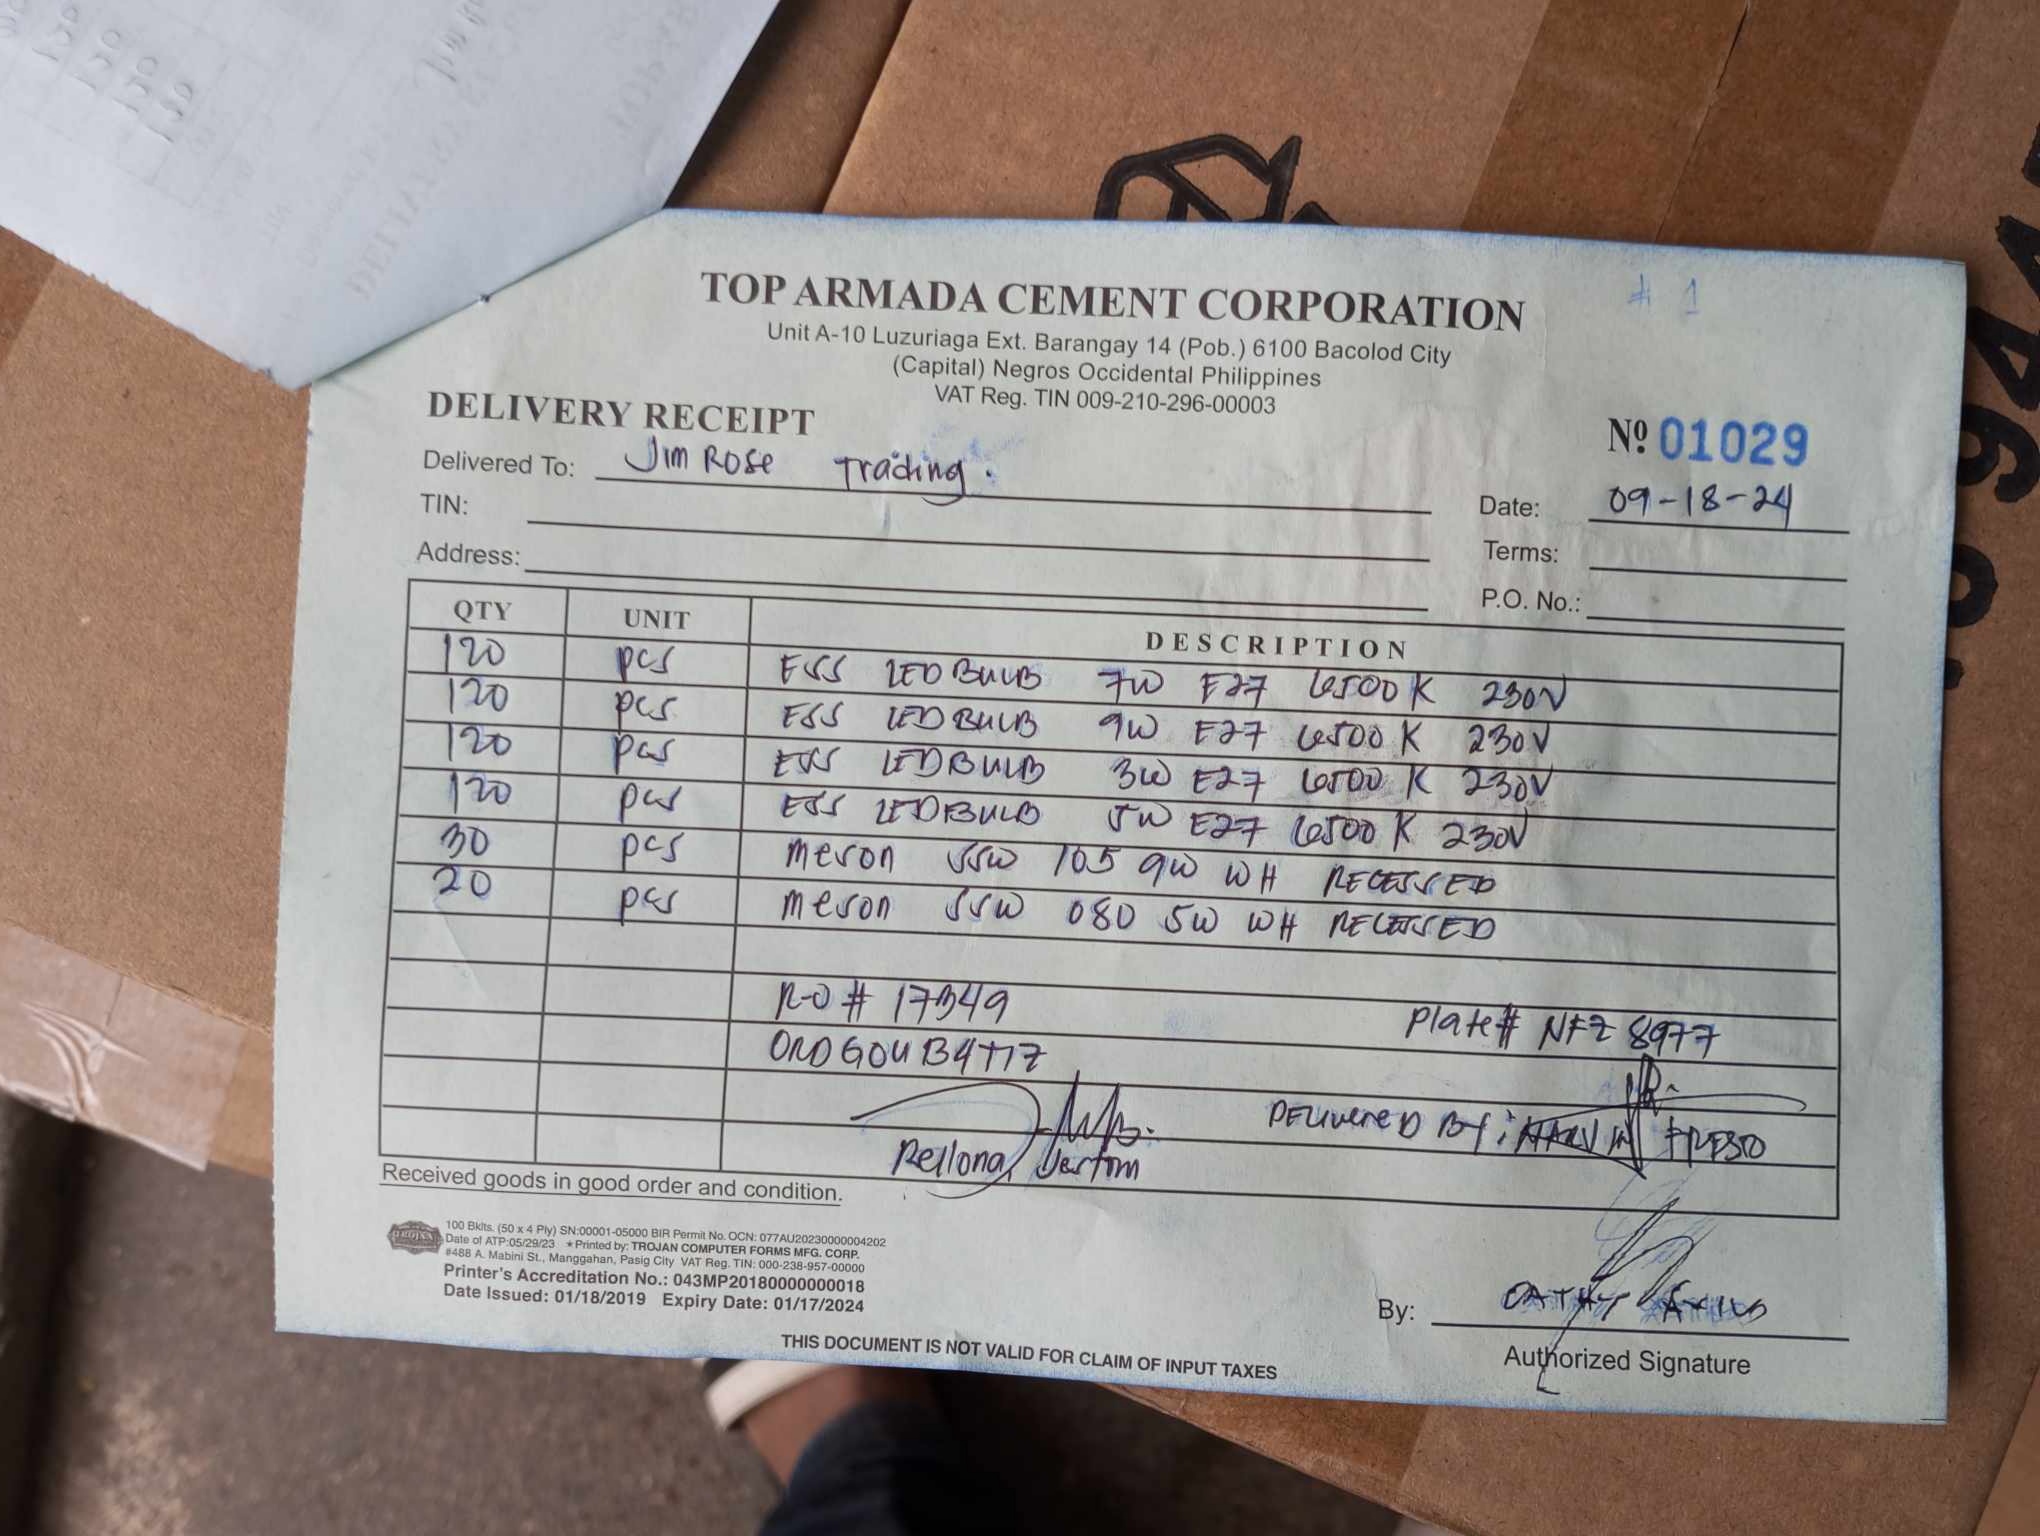 # 1
TOP ARMADA CEMENT CORPORATION
Unit A-10 Luzuriaga Ext. Barangay 14 (Pob.) 6100 Bacolod City
(Capital) Negros Occidental Philippines
VAT Reg. TIN 009-210-296-00003
DELIVERY RECEIPT
Nº 01029
Delivered To: Jim Rose Trading.
Date: 09-18-24
TIN:
Terms:
Address:
P.O. No.:
QTY UNIT DESCRIPTION
120 pcs ESS LEDBULB 7W E27 6500K 230V
120 pcs ESS LEDBULB 9W E27 6500K 230V
120 pcs ESS LEDBULB 3W E27 6500K 230V
120 pcs ESS LEDBULB 5W E27 6500K 230V
30 pcs meron SSW 105 9W WH RECESSED
20 pcs meron SSW 080 5W WH RECESSED
R-O # 17349 Plate# NFZ 8977
DELIVERED BY: MARVIN PRESTO
Rellona, Jestom
Received goods in good order and condition.
100 Bklts. (50 x 4 Ply) SN:00001-05000 BIR Permit No. OCN: 077AU20230000004202
Date of ATP:05/29/23 ★Printed by: TROJAN COMPUTER FORMS MFG. CORP.
#488 A. Mabini St., Manggahan, Pasig City VAT Reg. TIN: 000-238-957-00000
Printer's Accreditation No.: 043MP20180000000018
Date Issued: 01/18/2019 Expiry Date: 01/17/2024
By: CATHY
Authorized Signature
THIS DOCUMENT IS NOT VALID FOR CLAIM OF INPUT TAXES